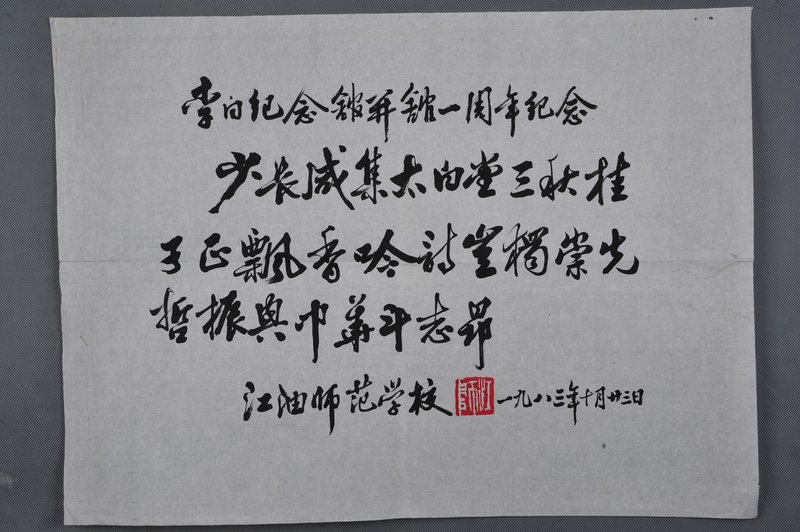 李白纪念馆开舘一周年纪念
少长咸集太白堂三秋桂
子正飘香吟诗岂独崇先
哲振兴中华斗志昂
江油师范学校 江师 一九八三年十月廿三日